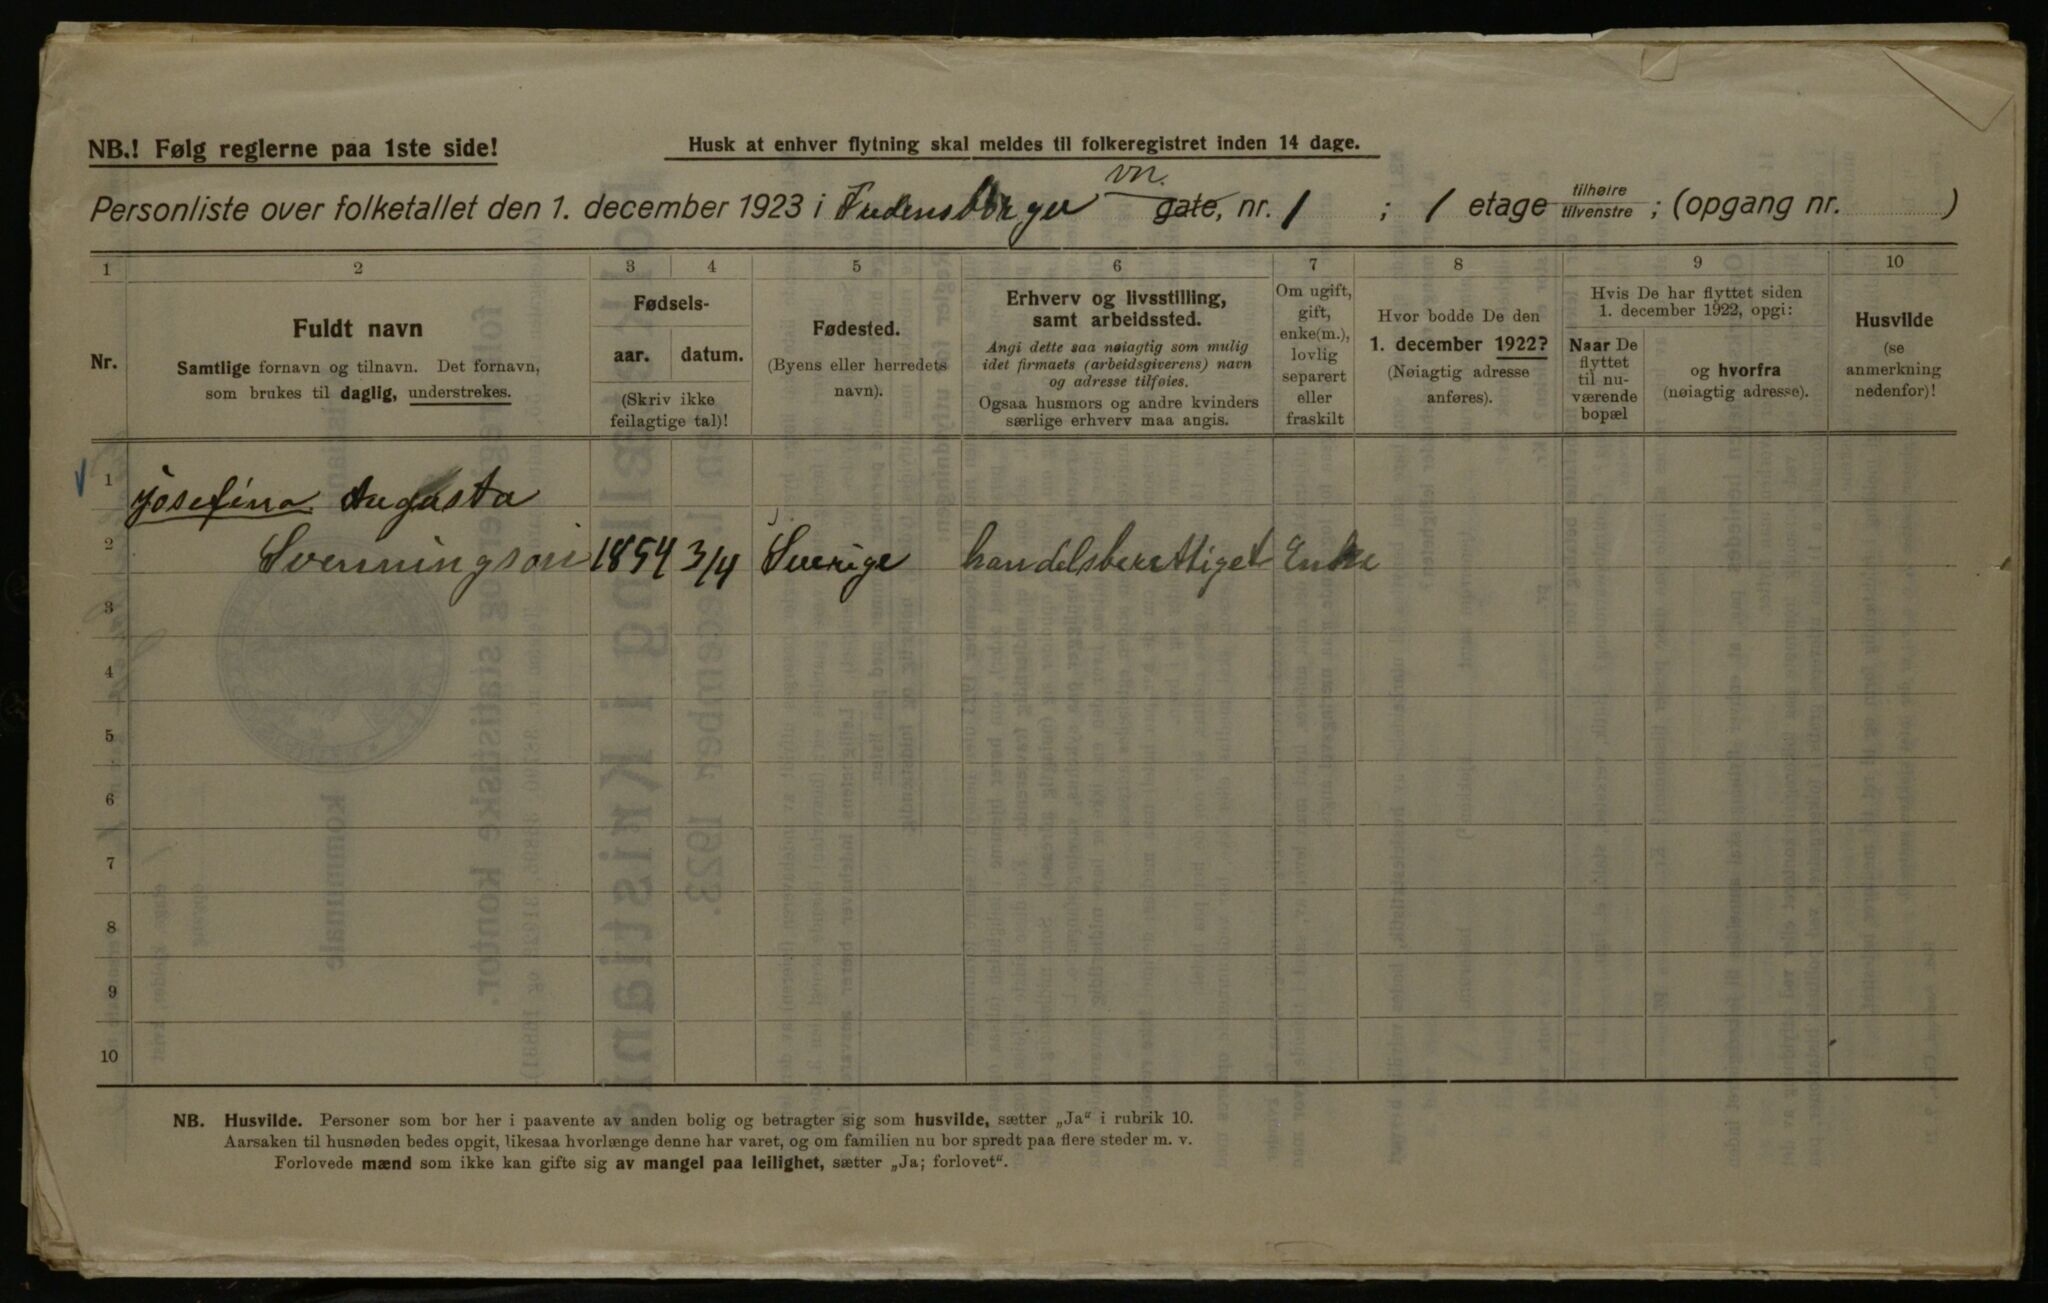 NB.! Følg reglerne paa 1ste side!
Husk at enhver flytning skal meldes til folkeregistret inden 14 dage.
vn.
Personliste over folketallet den 1. december 1923 i Fredensborger gate, nr. 1 ; 1 etage tilhøire tilvenstre ; (opgang nr. )
1 2 3 4 5 6 7 8 9 10
Nr.
Fuldt navn
Samtlige fornavn og tilnavn. Det fornavn,
som brukes til daglig, understrekes.
Fødsels-
aar. datum.
(Skriv ikke
feilagtige tal)!
Fødested.
(Byens eller herredets
navn).
Erhverv og livsstilling,
samt arbeidssted.
Angi dette saa nøiagtig som mulig
idet firmaets (arbeidsgiverens) navn
og adresse tilføies.
Ogsaa husmors og andre kvinders
særlige erhverv maa angis.
Om ugift,
gift,
enke(m.),
lovlig
separert
eller
fraskilt
Hvor bodde De den
1. december 1922?
(Nøiagtig adresse
anføres).
Hvis De har flyttet siden
1. december 1922, opgi:
Naar De
flyttet
til nu-
værende
bopæl
og hvorfra
(nøiagtig adresse).
Husvilde
(se
anmerkning
nedenfor)!
1 Josefina Augusta
2 Svenningson 1854 3/4 Sverige handelsberettiget Enke
3
4
5
6
7
8
9
10
NB. Husvilde. Personer som bor her i paavente av anden bolig og betragter sig som husvilde, sætter „Ja“ i rubrik 10.
Aarsaken til husnøden bedes opgit, likesaa hvorlænge denne har varet, og om familien nu bor spredt paa flere steder m. v.
Forlovede mænd som ikke kan gifte sig av mangel paa leilighet, sætter „Ja; forlovet“.